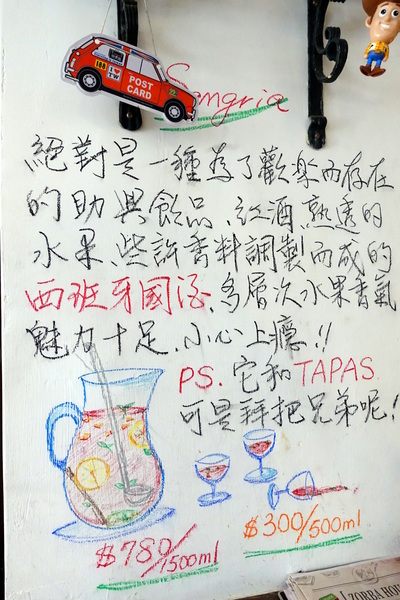 POST CARD
Sangria
絕對是一種為了歡樂而存在
的助興飲品、紅酒、熟透的
水果、些許香料調製而成的
西班牙國酒、多層次水果香氣
魅力十足、小心上癮!!
PS. 它和TAPAS
可是拜把兄弟呢!
$780/1500ml
$300/500ml